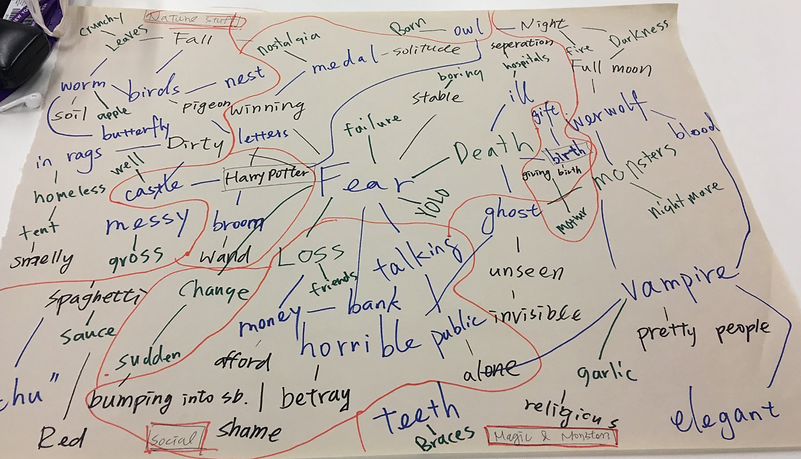 Nature stuff
crunchy
Leaves
Fall
nostalgia
Born
owl
Night
Darkness
worm
birds
nest
medal
solitude
seperation
fire
Full moon
soil
apple
pigeon
winning
boring
hospitals
stable
ill
gift
werwolf
blood
butterfly
Dirty
letters
failure
Death
birth
in rags
well
castle
Harry Potter
Fear
giving birth
monsters
homeless
YOLO
night mare
tent
messy
broom
ghost
mother
smelly
gross
wand
Loss
talking
unseen
spaghetti
change
friends
vampire
sauce
money
bank
public
invisible
pretty people
sudden
afford
horrible
alone
garlic
chu"
bumping into sb.
betray
teeth
religious
elegant
Red
Social
shame
Braces
Magic & Monsters